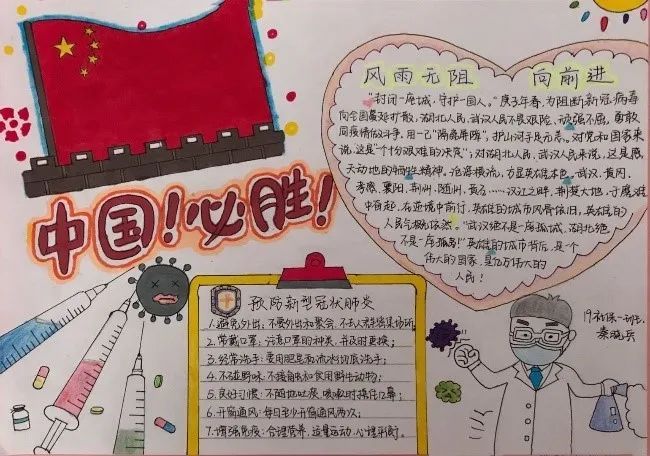 中国!必胜!
风雨无阻 向前进
"封闭一座城,守护一国人。"庚子年春,为阻断新冠病毒
向全国蔓延扩散,湖北人民、武汉人民不畏艰险、顽强不屈,勇敢
同疫情做斗争,用一己"隔离屏障",护山河于无恙。对党和国家来
说,这是"十分艰难的决定";对湖北人民、武汉人民来说,这是感
天动地的牺牲精神。沧海横流,方显英雄本色。武汉、黄冈、
孝感、襄阳、荆州、随州、黄石……汉江之畔、荆楚大地,于危难
中奋起,在逆境中前行,英雄的城市风骨依旧,英雄的
人民气概依然。"武汉绝不是一座孤城,湖北绝
不是一座孤岛!"英雄的城市背后,是一个
伟大的国家,是亿万伟大的
人民!
预防新型冠状肺炎
1.避免外出:不要外出和聚会,不去人群密集场所;
2.常戴口罩:注意口罩的种类,并及时更换;
3.经常洗手:要用肥皂和流水彻底洗手;
4.不碰野味:不接触和食用野生动物;
5.良好习惯:不随地吐痰,咳嗽时捂住口鼻;
6.开窗通风:每日至少开窗通风两次;
7.增强免疫:合理营养,适量运动,心理平衡。
19社体一班
秦晓兵